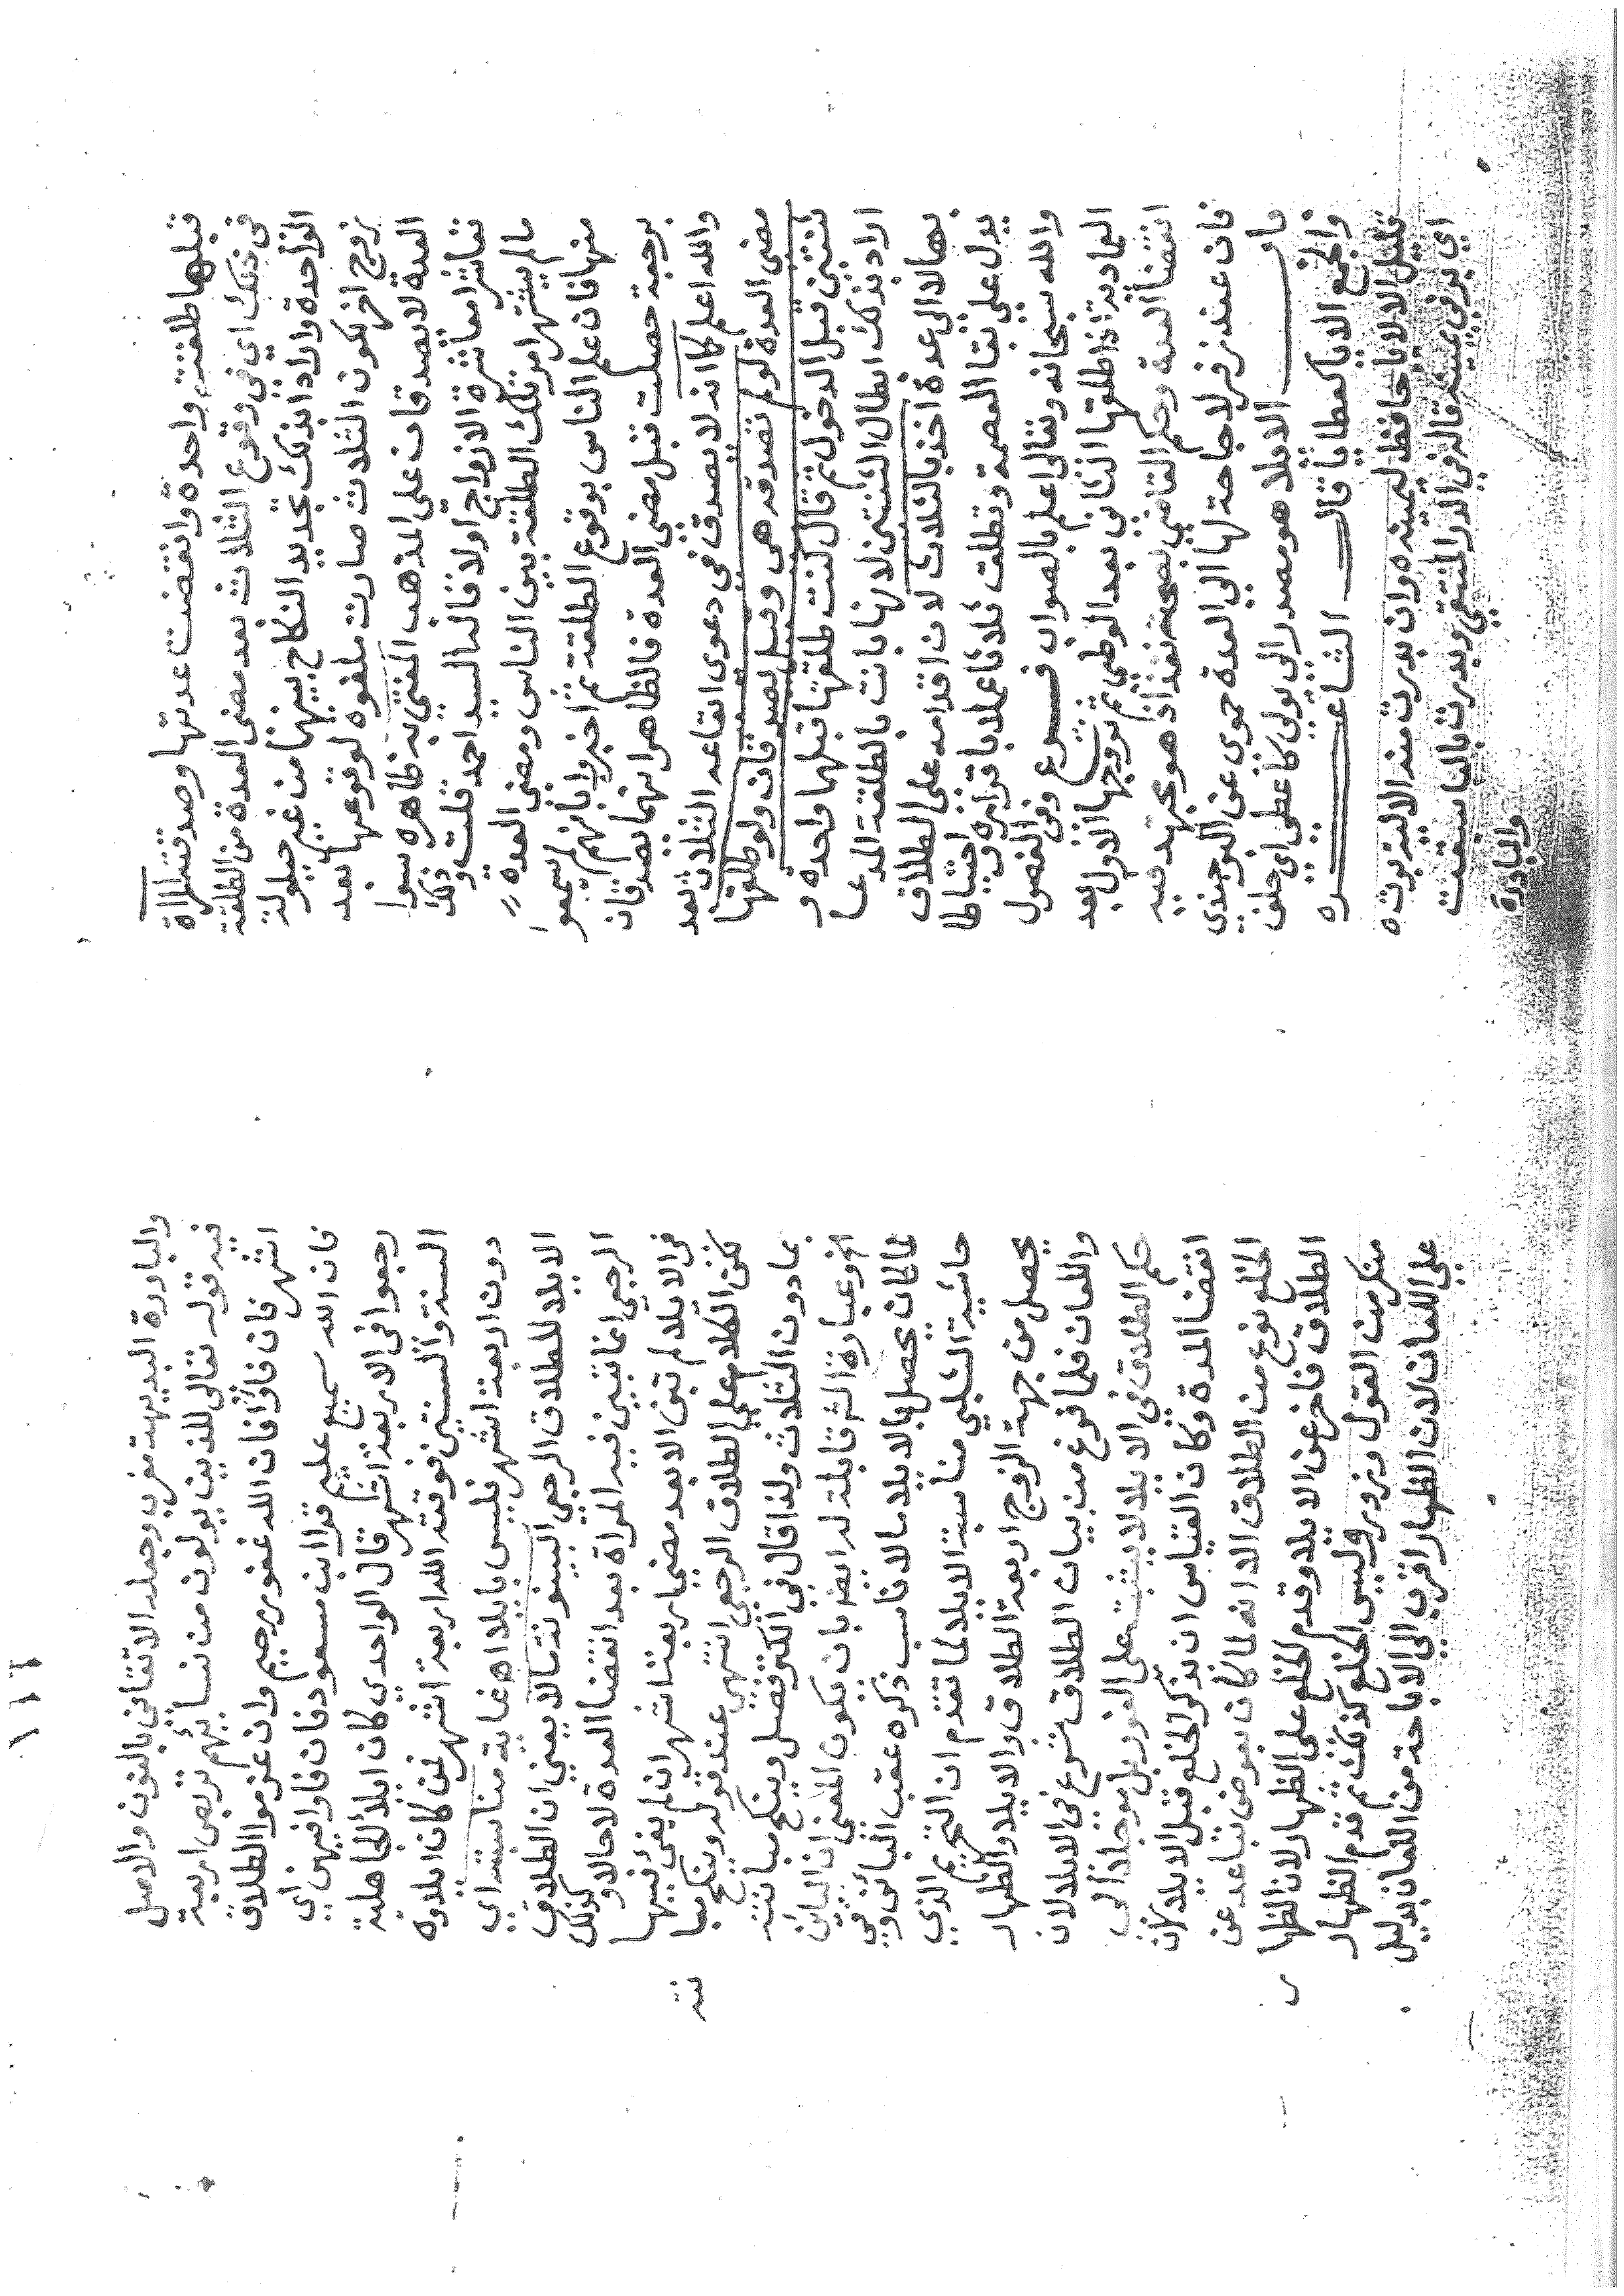 قبلها طلقتها واحدة وانقضت عدتها وصدقته المراة
في ذلك اي في وقوع الثلاث بعد مضي العدة من الطلقة
الواحدة وارادا بذلك تجديد النكاح بينهما من غير حيلولة
بزوج اخر لكون الثلاث صارت ملغوه لوقوعها بعد
العدة لا يصدقان على المذهب المفتي به ظاهره سوا
تعاشرا معاشرة الازواج اولا قال السيد احمد قلت وذلك
مالم يشتهر امر تلك الطلقة بين الناس ومضي العدة
منها فان علم الناس بوقوع الطلقة ثم اخبروا بانهم لم يسمعو
برجعة حصلت قبل مضي العدة فالظاهر انهما يصدقان
والله اعلم كما انه لا يصدق في دعوى ايقاعه الثلاث بعد
مضي العدة لو لم تصدقه هي وقيل يصدقان ولو طلقها
ثنتين قبل الدخول ثم قال كنت طلقتها قبلها واحدة و
اراد بذلك ابطال الثنتين لانها بانت بالطلقة المدعا
بها لا الى عدة اخذ بالثلاث لان اقدامه على الطلاق
يدل على بقا العصمة وتطلق ثلاثا عملا باقراره واحتياطا
والله سبحانه وتعالى اعلم بالصواب فرع وفي الفصول
العمادية اذا طلقها الثاني بعد الوطي ثم تزوجها الاول بعد
انقضا العدة وحكم القاضي بصحته نفذ اذ هو مجتهد فيه
فان عند زفر لا حاجة لها الى العدة حموى عن البرجندي
باب الايلا هو مصدر الى يولي كاعطى اي حلف
والجمع الايا كعطايا قال الشاعر
قليل الالايا حافظ ليمينه وان بدرت منه الالية برت
اي بر في يمينه قال في الدر المنتقى وبدرت بالبا سبقت
والبادرة
١١٦
والبادرة البديهة مغرب وجعله الاتقاني بالنون والاصل
فيه قوله تعالى للذين يولون من نسائهم تربص اربعة
اشهر فان فاؤا فان الله غفور رحيم وان عزموا الطلاق
فان الله سميع عليم قرا ابن مسعود فان فاوا فيهن اي
رجعوا في الاربعة اشهر قال الواحدي كان ايلا الجاهلية
السنة والسنتين فوقته الله اربعة اشهر فمن كان ايلاوه
دون اربعة اشهر فليس بايلا اه غاية مناسبته اي
الايلا للطلاق الرجعي البينونة مالا يعني ان الطلاق
الرجعي انما تبين فيه المراة بعد انقضا العدة لا حالا وكذلك
في الايلا لم تبن الا بعد مضي اربعة اشهر ان لم يفئ فيها
لكن الكلام على الطلاق الرجعي انتهى عند قوله وينكح مبا نته
بما دون الثلاث ولذا قال في الكنز فصل وينكح مبانته
الخ وعبارة الشر قابلة له ايضا بان يكون المعنى ان البائن
لما كان يحصل بالايلا مالا ناسب ذكره عقب البائن وفي
حاشية الشلبي مناسبة الايلا لما تقدم ان التحريم الذي
يحصل من جهة الزوج اربعة الطلاق والايلا والظهار
واللعان فلما فرغ من بيان الطلاق شرع في الايلا لان
حكم الطلاق في الايلا لا يثبت على الفور بل موجلا الى
انقضا المدة وكان القياس ان نذكر الخلع قبل الايلا لان
الخلع نوع من الطلاق الا انه لما كان بعوض تباعد عن
الطلاق فاخر عن الايلا وقدم الخلع على الظهار لان الظهار
منكر من القول وزور وليس الخلع كذلك ثم قدم الظهار
على اللعان لان الظهار اقرب الى الاباحة من اللعان بدليل